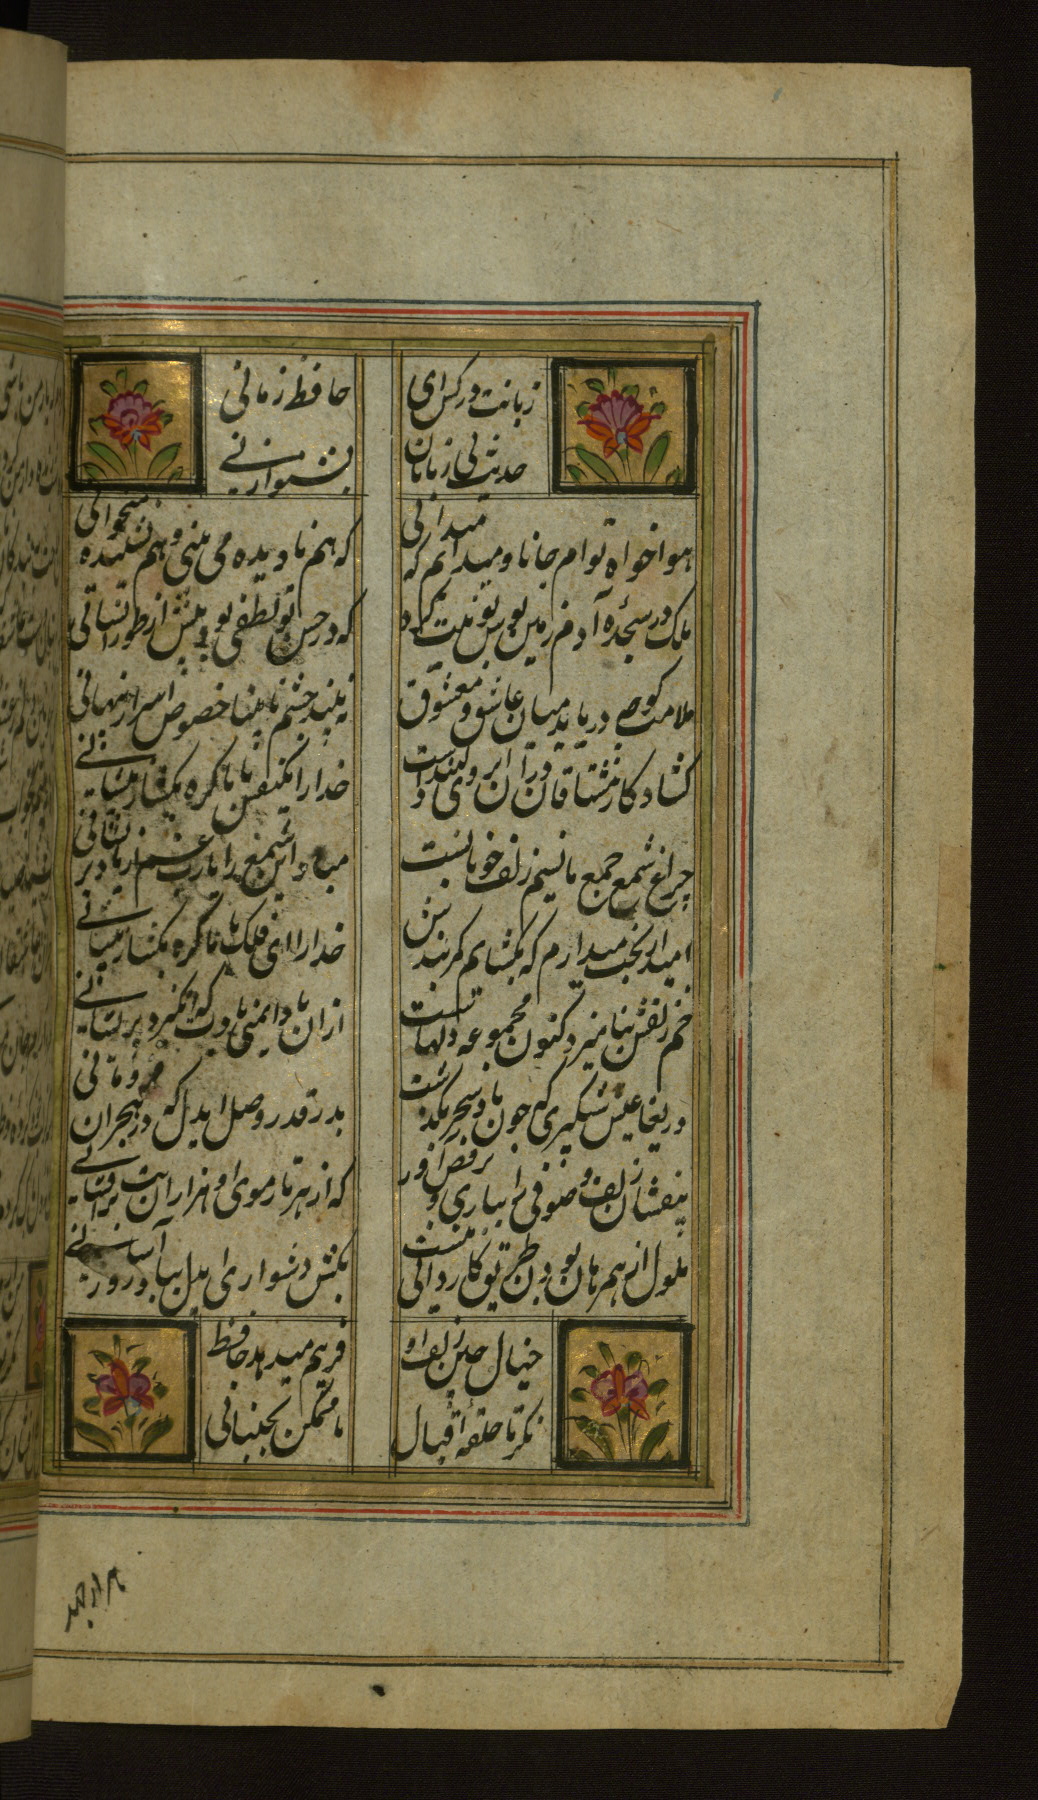 زبانت درکش ای حافظ زمانی
حدیث بی زبانان بشنو از نی
هواخواه توام جانا و میدانم که میدانی که هم نادیده می بینی و هم ننوشته میخوانی
ملک در سجده آدم زمین بوس تو نیت کرد که در حسن تو لطفی بود بیش از طور انسانی
ملامت گو چه دریابد میان عاشق و معشوق نه بیند چشم نابینا خصوص اسرار پنهانی
گشاد کار مشتاقان در آن ابروی دلبندست خدا را یکنفس با ما گره بگشا ز پیشانی
چراغ شمع جمع ما نسیم زلف خوبانست مباد این جمع را یارب غم از باد پریشانی
امید از بخت میدارم که بگشایم کمربندش خدا را ای فلک با ما گره بگشا ز پیشانی
خم زلفش بنامیزد کنون مجموعه دلهاست از آن باد ایمنی بادت که انگیزد پریشانی
دریغا عیش شبگیری که چون باد سحر بگذشت بدر قدر وصل ایدل که در هجران فرومانی
بیفشان زلف و صوفی را ببازی و برقص آور که از هر تار موی او هزاران بت برافشانی
ملول از همرهان بودن طریق کاردانی نیست بکش دشواری ای دل بیاد روز آسانی
خیال چنبر زلف او فریبم میدهد حافظ
نگر تا حلقه اقبال ناممکن نجنبانی